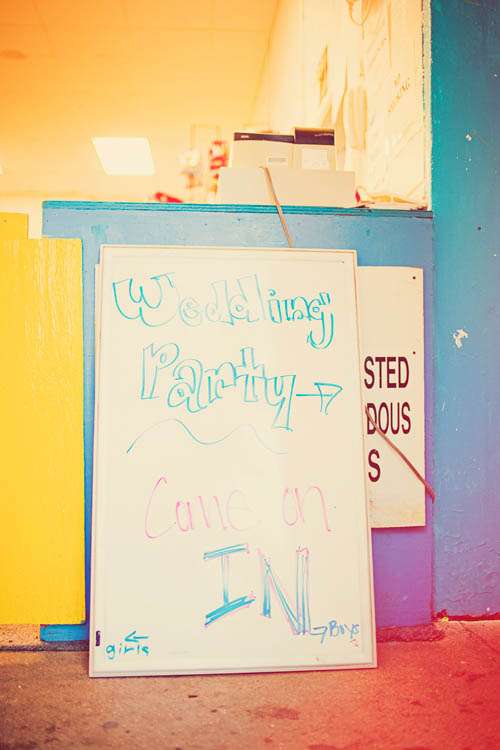 Wedding
Party →
Come on
IN
→ Boys
← girls
STED
DOUS
S